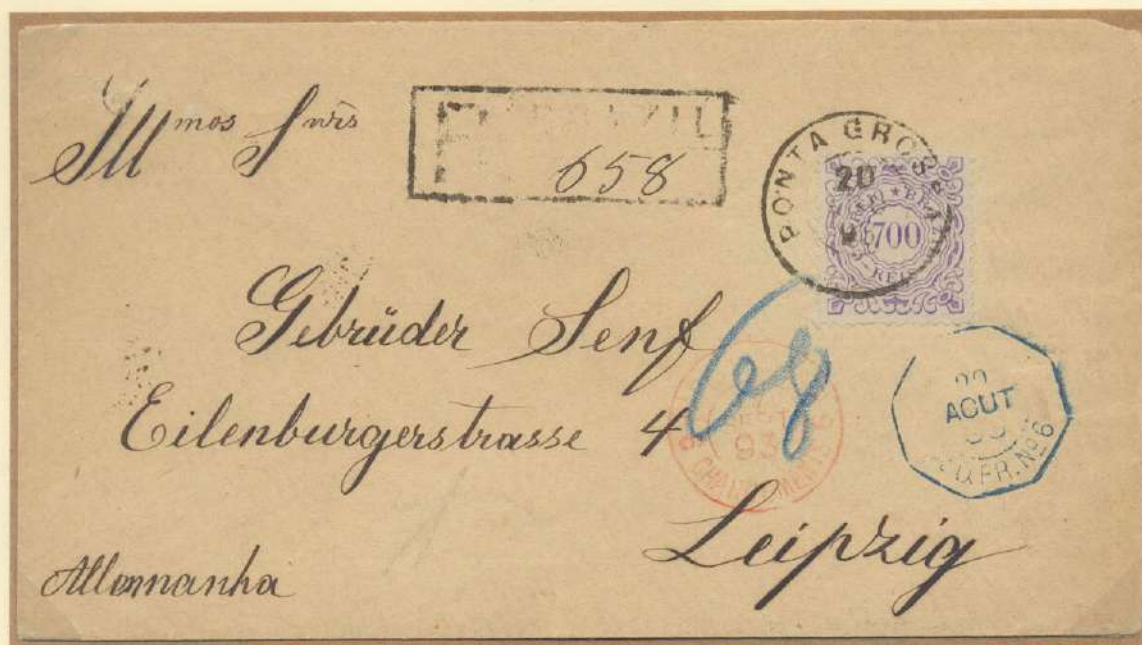 Illmos Snrs
658
PONTA GROS
20
700
Gebrüder Senf
Eilenburgerstrasse 4
68
93
AOUT
FR. Nº 6
Leipzig
Allemanha